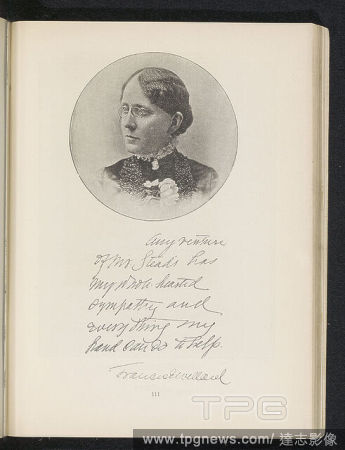 Any venture
of Mr Stead's has
my whole hearted
sympathy and
everything my
hand can do to help.
Frances E Willard
111
TPG
www.tpgnews.com / 達志影像